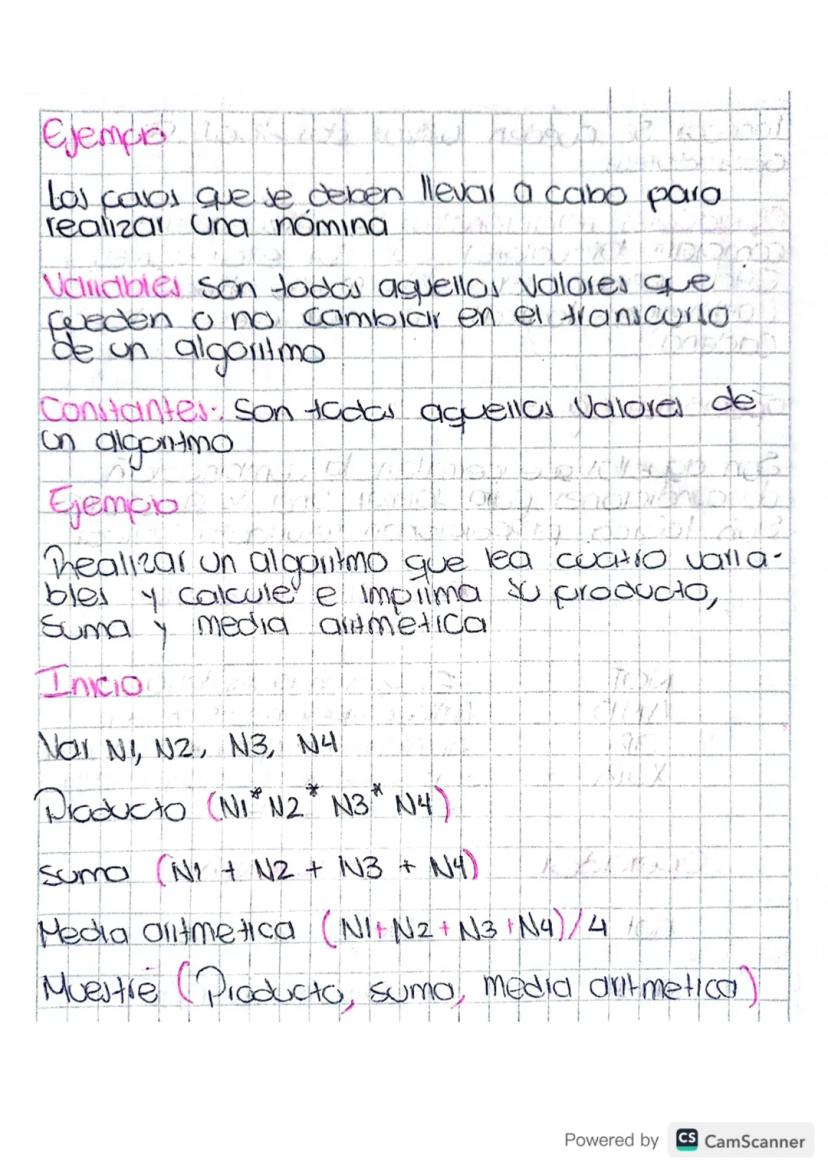 Ejemplo
Los pasos que se deben llevar a cabo para
realizar una nómina
Variables son todos aquellos valores que
pueden o no cambiar en el transcurso
de un algoritmo
Constantes: Son todos aquellos valores de
un algoritmo
Ejemplo
Realizar un algoritmo que lea cuatro varia-
bles y calcule e imprima su producto,
suma y media aritmetica
Inicio
Var N1, N2, N3, N4
Producto (N1* N2* N3* N4)
suma (N1 + N2 + N3 + N4)
Media aritmetica (N1+N2+N3+N4)/4
Muestre (Producto, suma, media aritmetica)
Powered by CS CamScanner